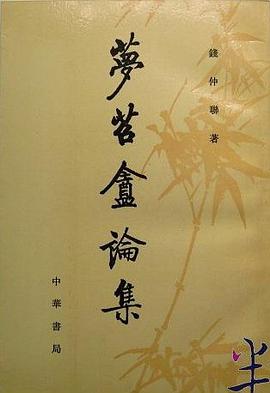 錢仲聯著
夢苕盦論集
中華書局
半